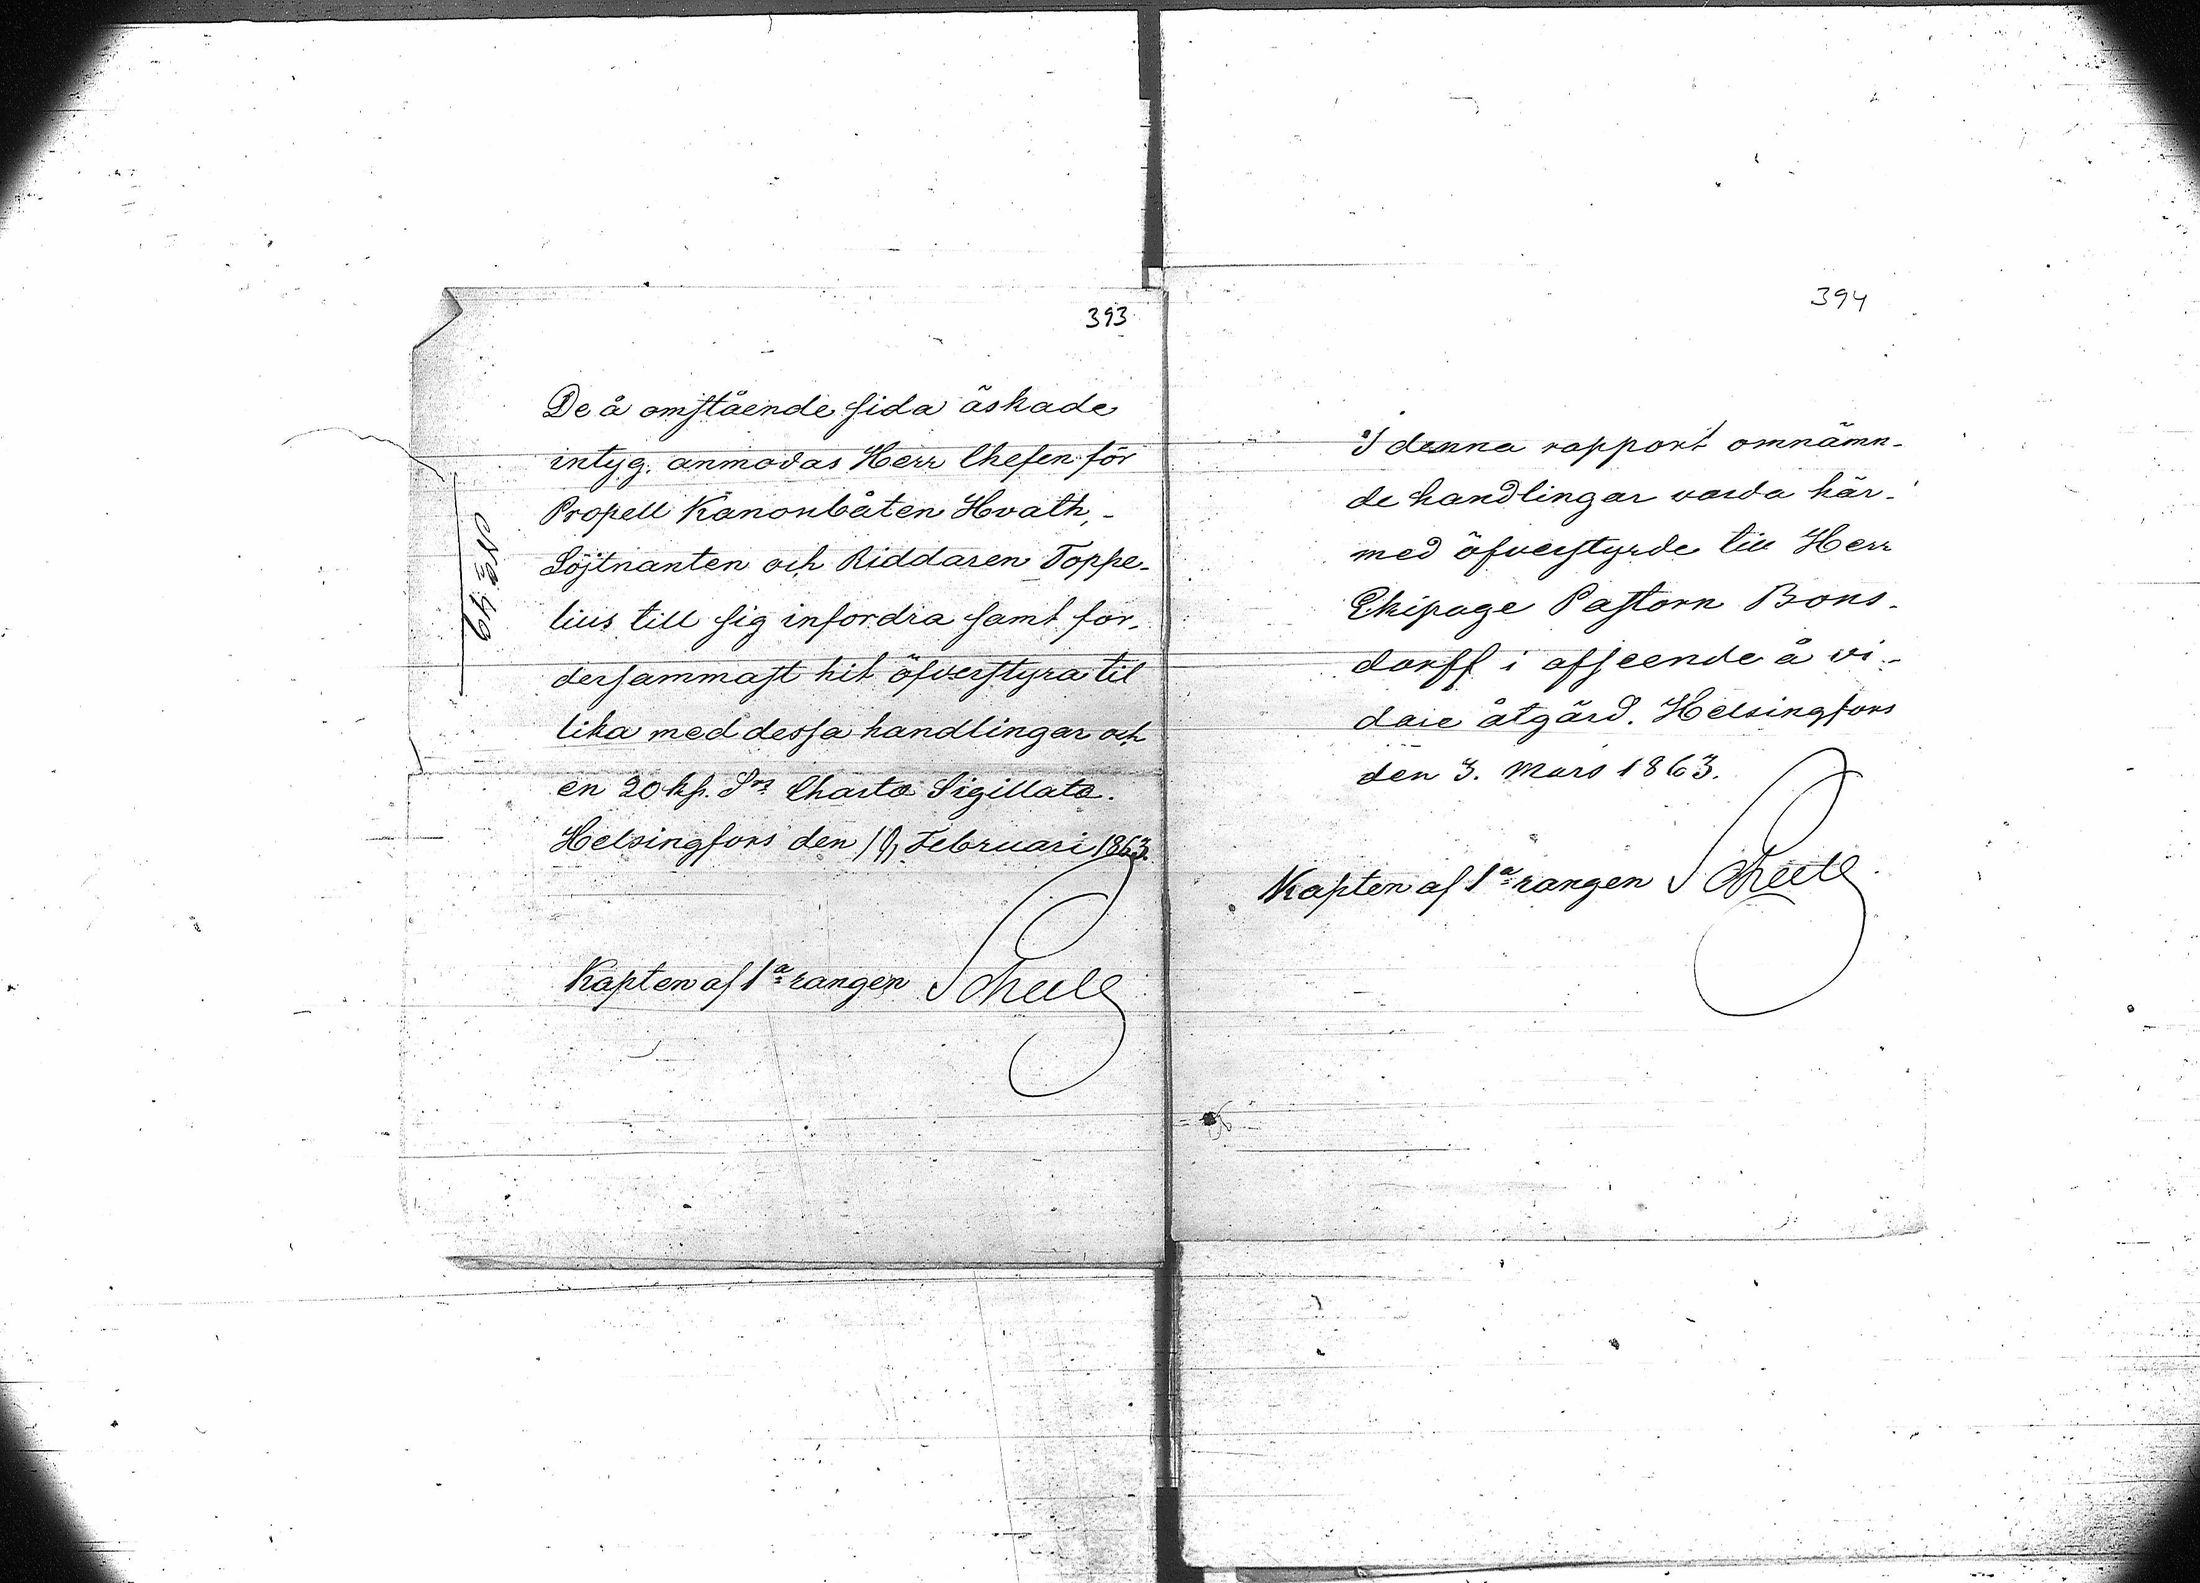 393
De å omstående sida äskade
intyg. anmodas Herr Chefen för
Propell Kanonbåten Hvath,-
Löjtnanten och Riddaren Toppe-
lius till sig infordra samt for-
dersammast hit öfverstyra til
lika med dessa handlingar och
en 20 kp. Sr Charta Sigillata.
Helsingfors den Februari 1863.
Kapten af 1a rangen
No 49
394
I denna rapport omnämn-
de handlingar varda här-
med öfverstyrde till Herr
Ekipage Pastorn Bons-
dorff i afseende å vi-
dare åtgärd. Helsingfors
den 3. Mars 1863.
Kapten af 1a rangen